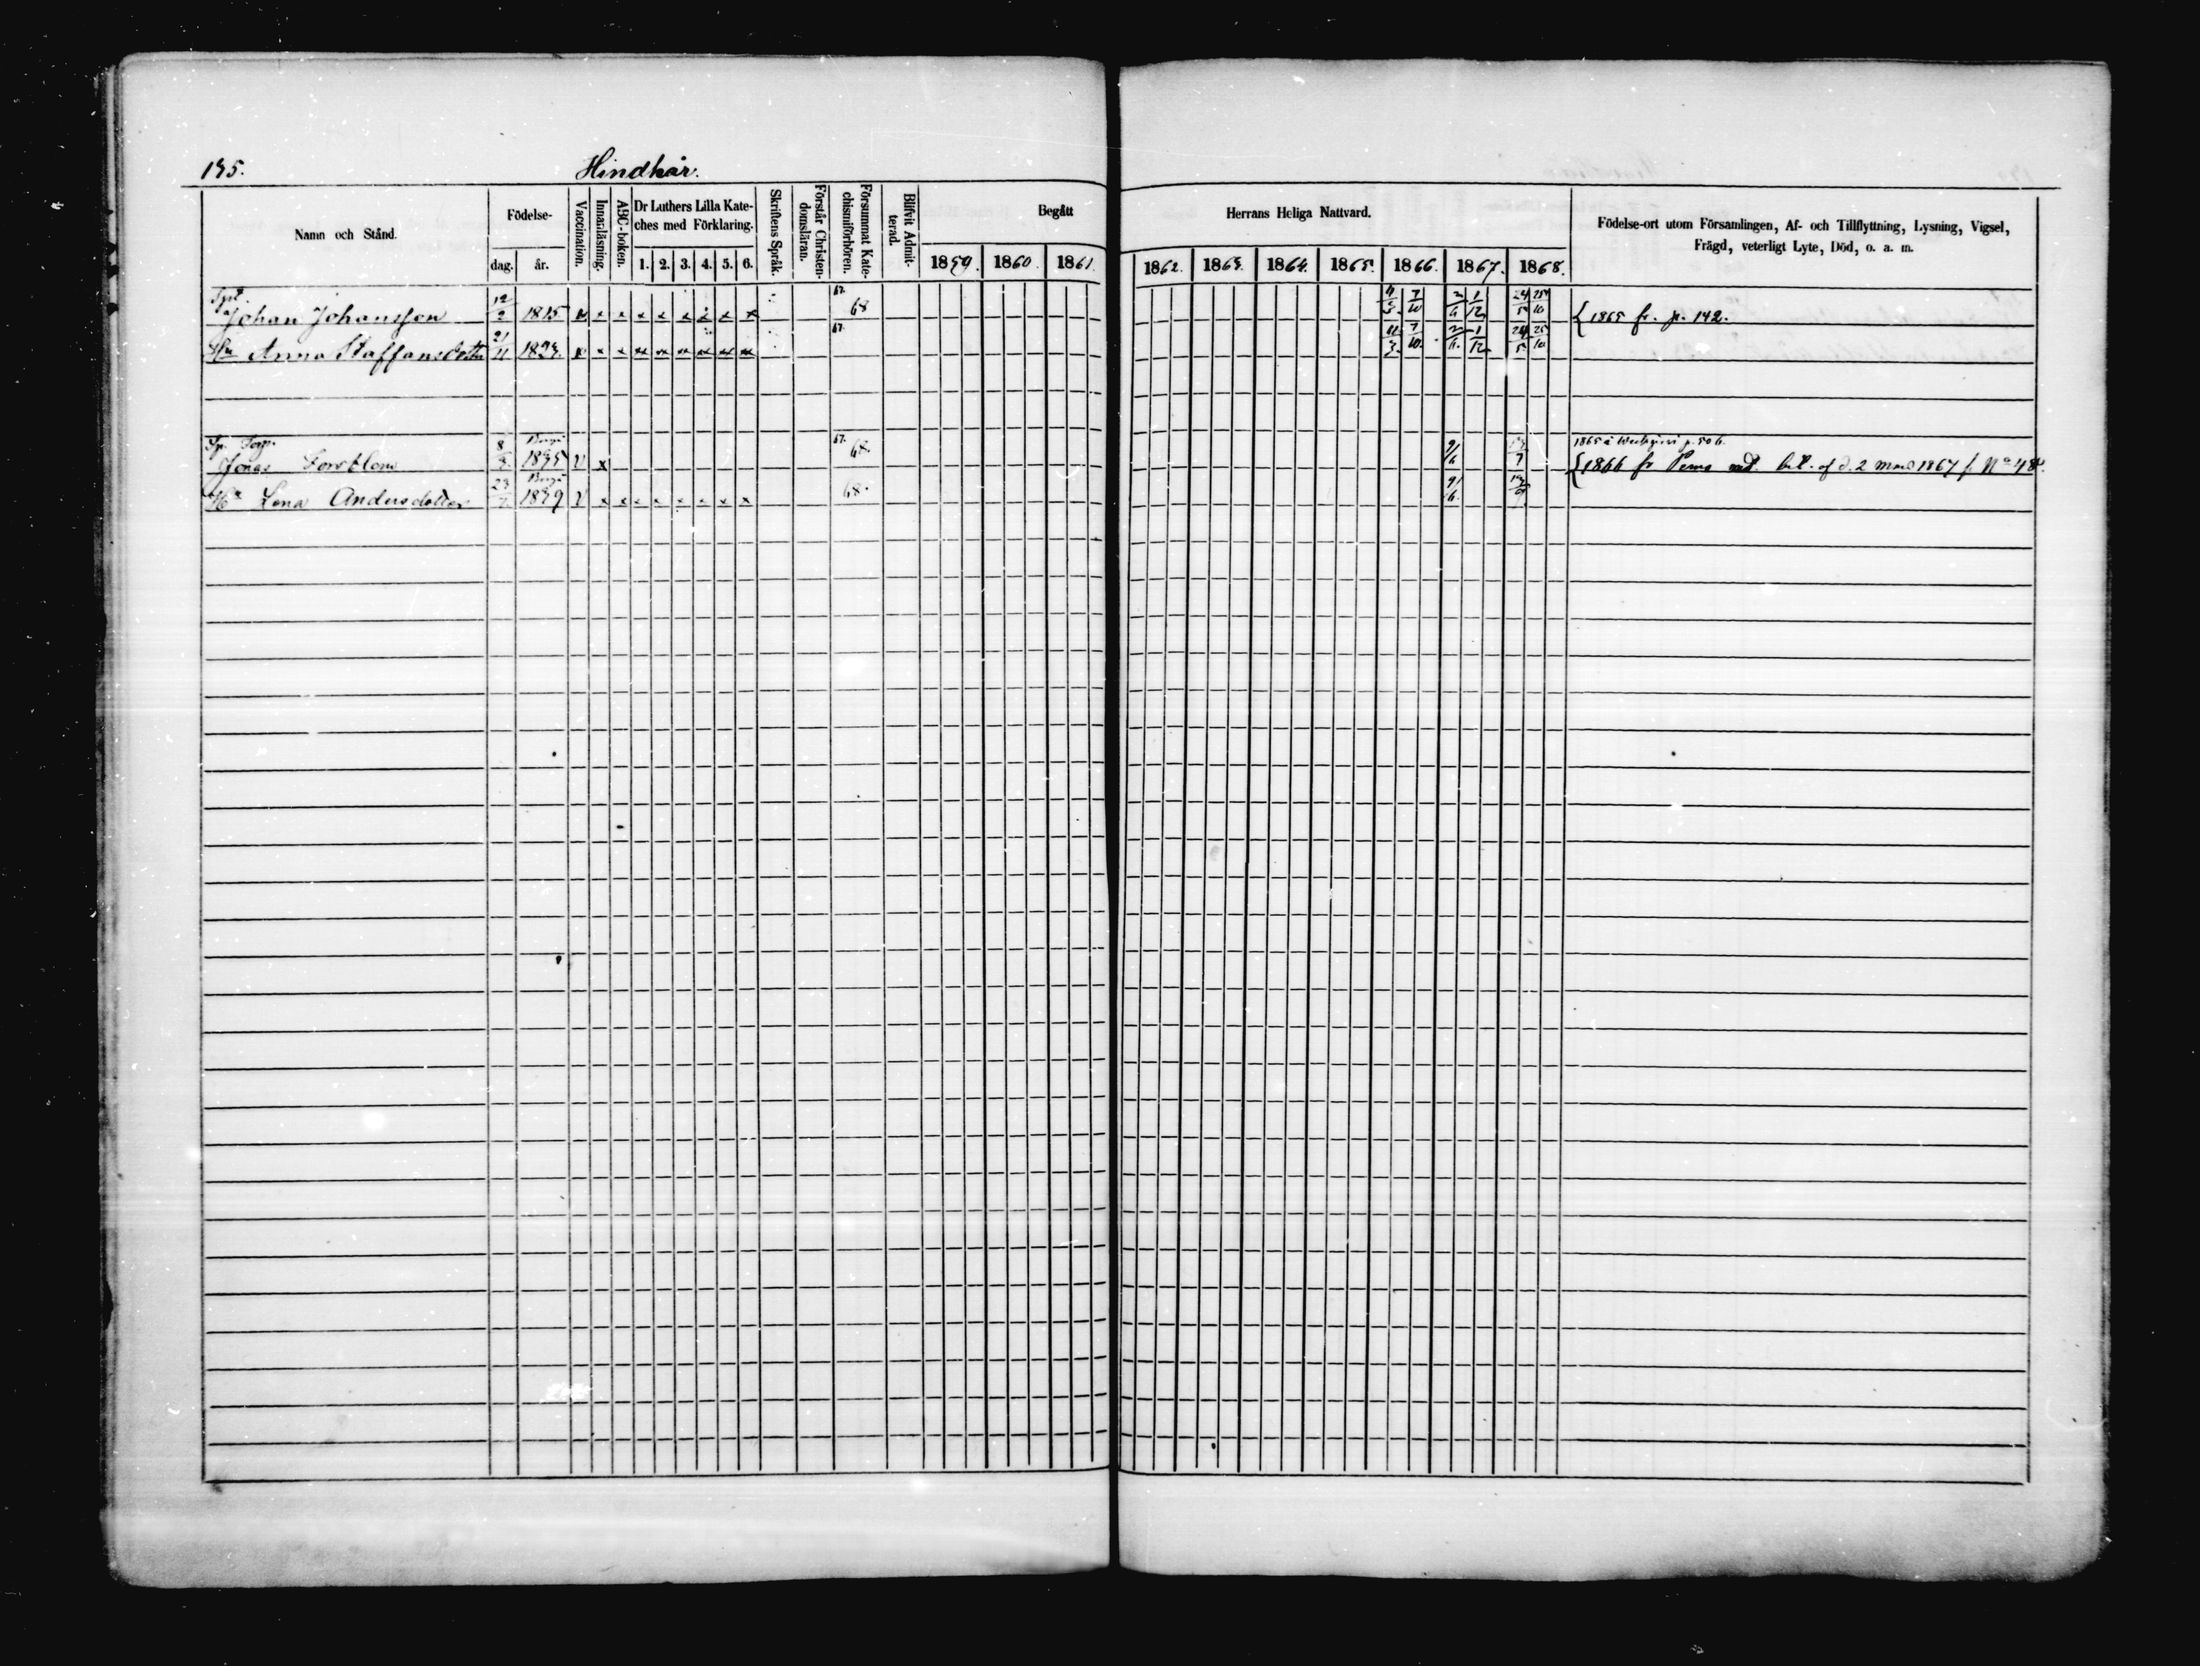 195. Hindhår.
Namn och Stånd.
Födelse-
dag. år.
Vaccination.
Innanläsning.
ABC-boken.
Dr Luthers Lilla Kate-
ches med Förklaring.
1. 2. 3. 4. 5. 6.
Skriftens Språk.
Förstår Christen-
domsläran.
Försummat Kate-
chismiförhören.
Blifvit Admit-
terad.
Begått
1859. 1860. 1861.
Herrans Heliga Nattvard.
1862. 1863. 1864. 1865. 1866. 1867. 1868.
Födelse-ort utom Församlingen, Af- och Tillflyttning, Lysning, Vigsel,
Frägd, veterligt Lyte, Död, o. a. m.
Johan Johansson 12/2 1815 x x x x x x x x 67. 68 7/10 1/12 24/5 25/10 1865 fr. p. 142.
Hu Anna Staffansdotter 21/11 1823. x x x x x x x x 67. 7/10 1/12 24/5 25/10
Jonas Forsblom 8 1835 V x 67. 68 9/6
1865 p. 506.
1866 fr Perno med bet. af d. 2 Mars 1867 No 48.
Hu Lena Andersdotter 23 1839 V x x x x x x x x 68. 9/6